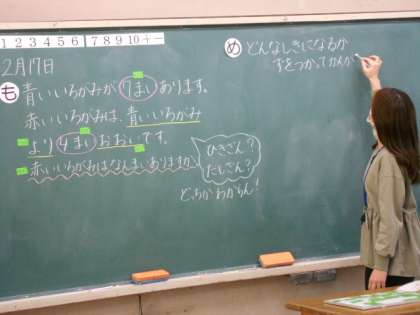 1 2 3 4 5 6 7 8 9 10 + −
2月17日
も 青いいろがみが7まいあります。
赤いいろがみは、青いいろがみ
より4まいおおいです。
赤いいろがみはなんまいありますか。
ひきざん？
たしざん？
どっちかわからん！
め どんなしきになるか
ずをつかってかんが